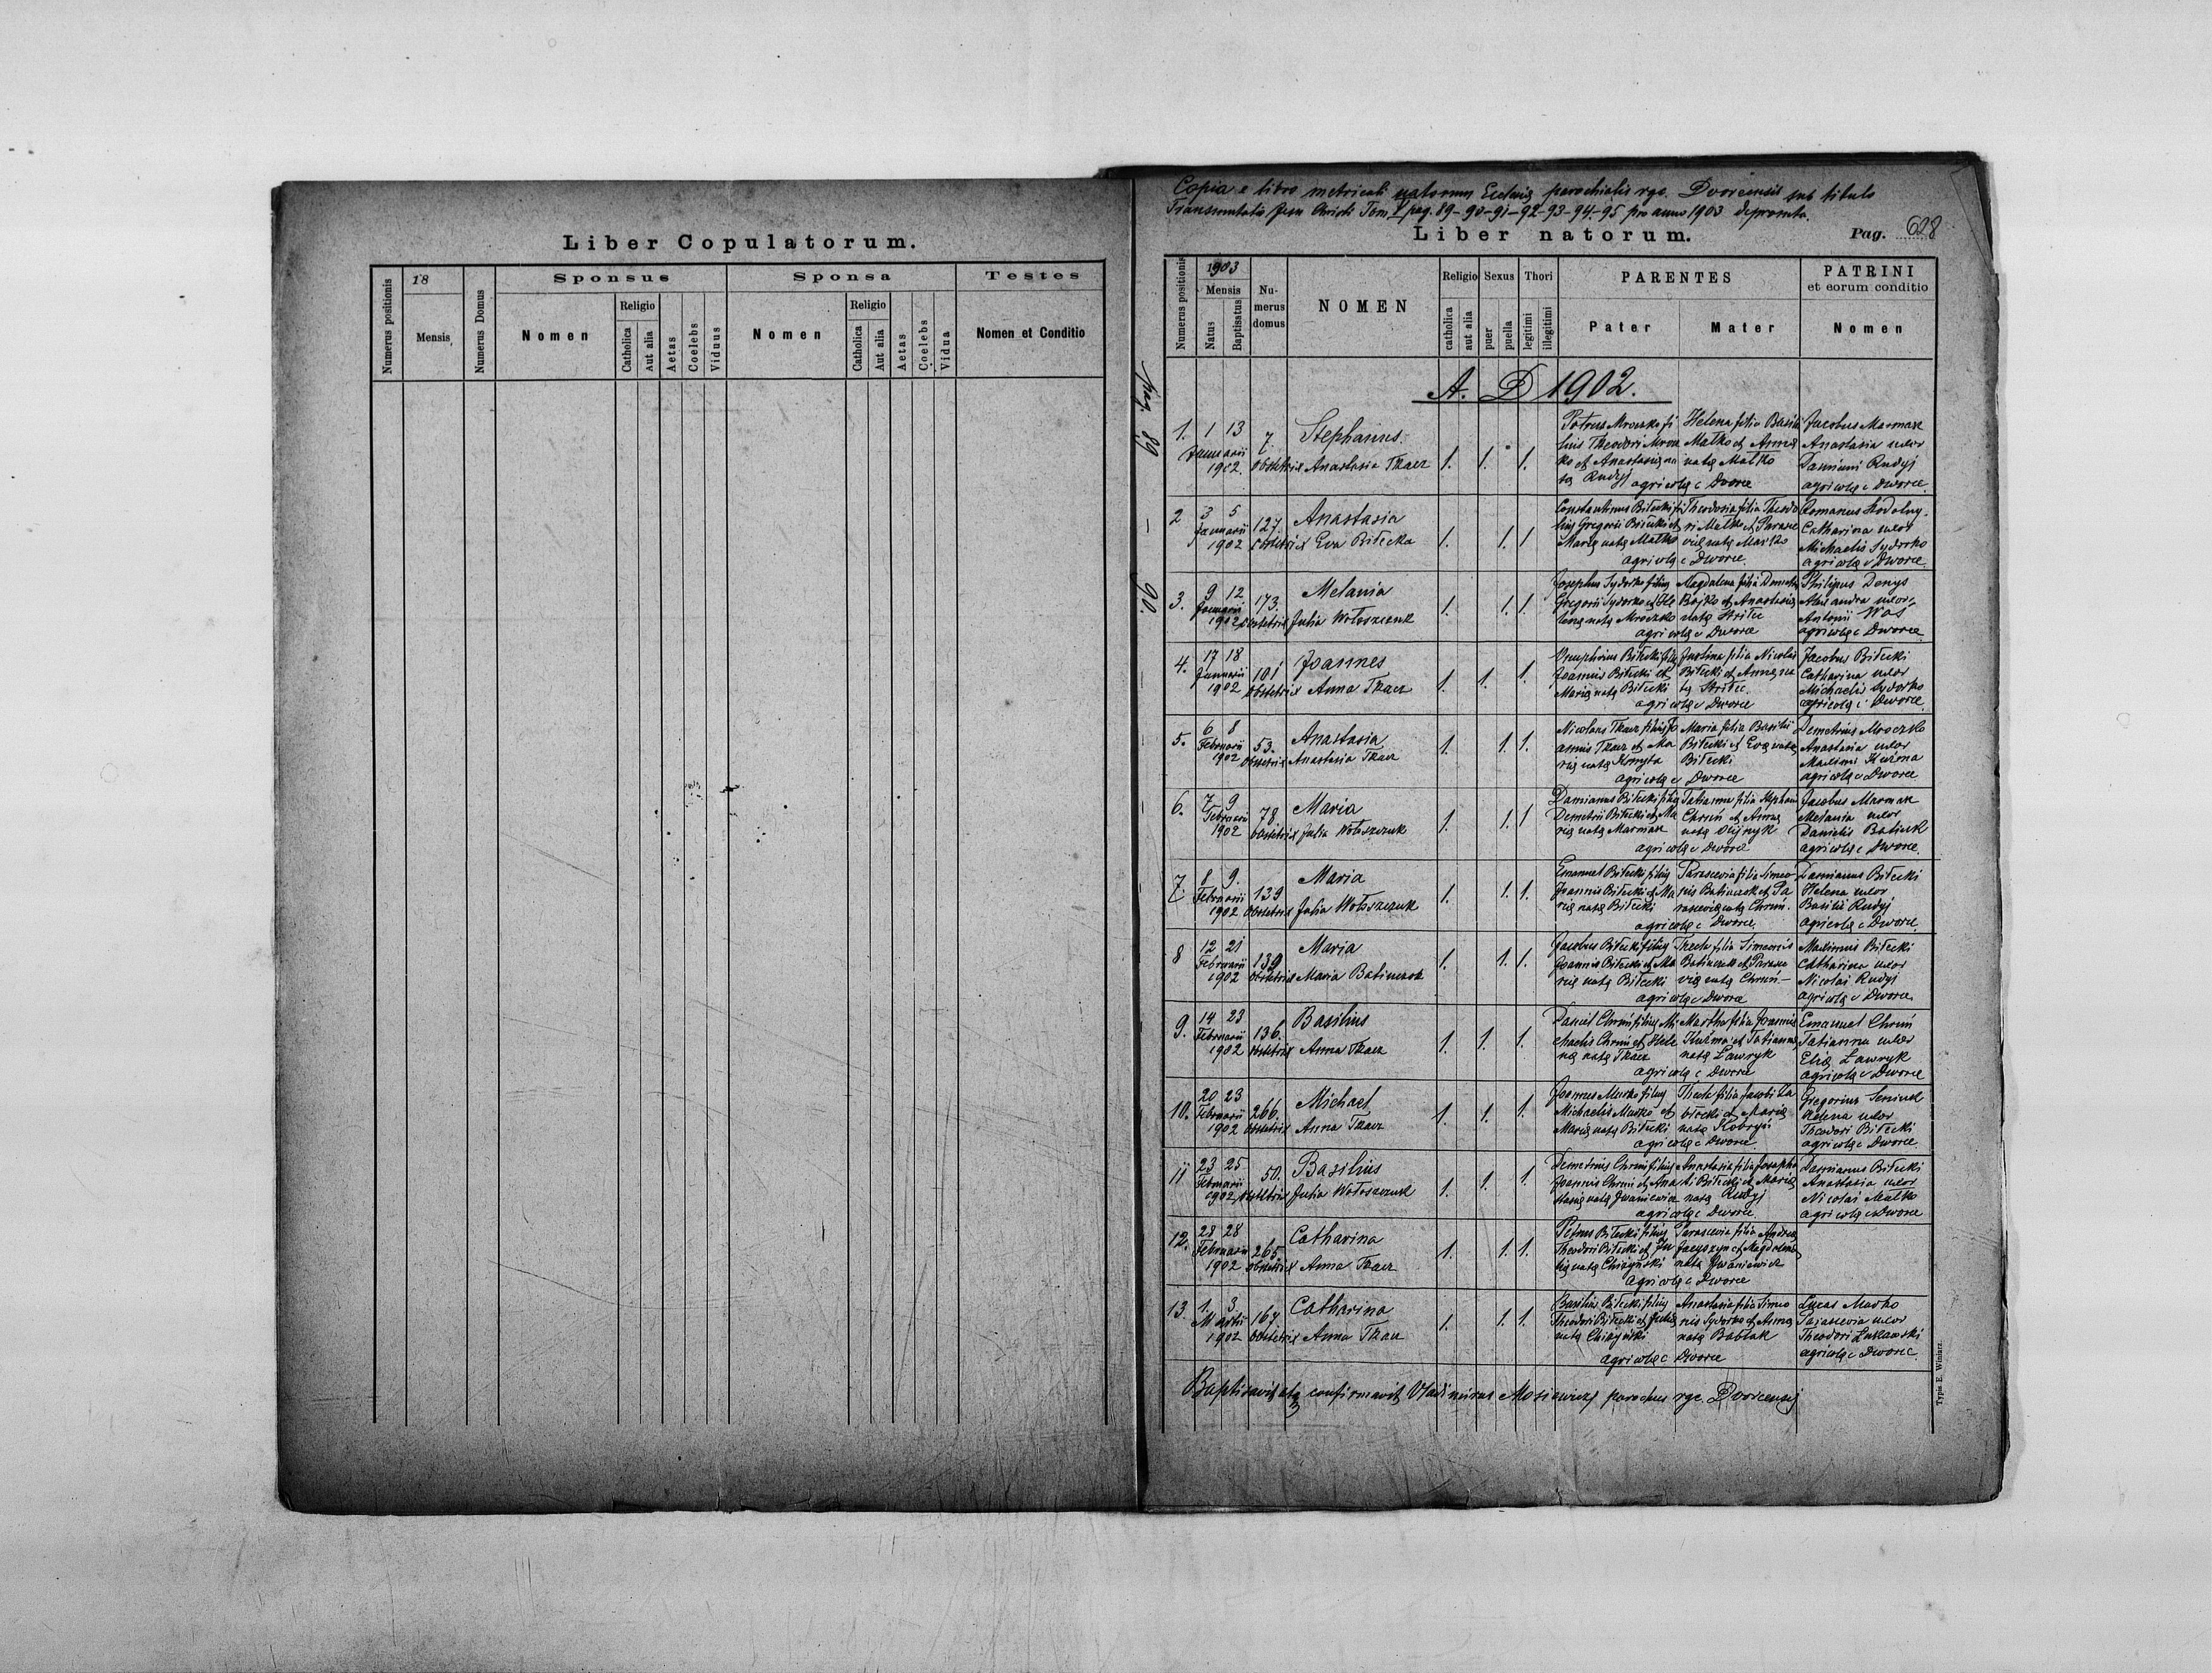 Liber Copulatorum.
Numerus positionis
18
Mensis
Numerus Domus
Sponsus
Nomen
Religio
Catholica
Aut alia
Aetas
Coelebs
Viduus
Sponsa
Nomen
Religio
Catholica
Aut alia
Aetas
Coelebs
Vidua
Testes
Nomen et Conditio
pag. 89 — 90.
Copia e libro metricali natorum Eccl. parochialis rgc. Dvorcensis sub titulo
Transmutatio Jesu Christi Tom. V pag. 89-90-91-92-93-94-95 pro anno 1903 deprompta.
Liber natorum.
Pag. 628
Numerus positionis
1903
Mensis
Natus
Baptisatus
Numerus domus
NOMEN
Religio
catholica
aut alia
Sexus
puer
puella
Thori
legitimi
illegitimi
PARENTES
Pater
Mater
PATRINI
et eorum conditio
Nomen
A. D 1902.
1. 1 13 Januarii 1902. 7. Stephanus.
Obstetrix Anastasia Tkacz
1. 1. 1.
Petrus Mroczko fi
lius Theodori Mrocz
ko et Anastasię na
tę Rudyj
Helena filia Basilii
Matko et Annę
natę Matko
agricolę c Dvorce
Jacobus Marmasz
Anastasia uxor
Damiani Rudyj
agricolę c Dworce.
2 3 5 Januarii 1902 127. Anastasia
Obstetrix Eva Biłecka
1. 1. 1
Constantinus Biłecki fi
lius Gregorii Biłecki et
Marię natę Matko
Theodosia filia Theodo
ri Matko et Parasce
vię natę Maśko
agricolę c Dworce.
Romanus
Catharina uxor
Michaelis Sydorko
agricolę c Dworce.
3. 9 12 Januarii 1902 173. Melania
Obstetrix Julia Wołoszczuk
1. 1. 1.
Josephus Sydorko filius
Gregorii Sydorko et He
lenę natę Mroczko
Magdalena filia Demetrii
Bojko et Anastasię
natę Striłec
agricolę c Dworce
Philipus Denys
Alexandra uxor
Antonii Waś
agricolę c Dworce.
4. 17 18 Januarii 1902 101 Joannes
Obstetrix Anna Tkacz
1. 1. 1.
Onuphrius Biłecki filius
Joannis Biłecki et
Marię natę Biłecki
Justina filia Nicolai
Biłecki et Annę na
tę Striłec.
agricolę c Dworce
Jacobus Biłecki
Catharina uxor
Michaelis Sydorko
agricolę c Dworce.
5. 6 8 Februarii 1902 53. Anastasia
Obstetrix Anastasia Tkacz
1. 1. 1.
Nicolaus Tkacz filius Jo
annis Tkacz et Ma
rię natę Kmyta
Maria filia Basilii
Biłecki et Evę natę
Biłecki
agricolę c Dworce
Demetrius Mroczko
Anastasia uxor
Maximi Kuźma
agricolę c Dworce
6. 7 9 Februarii 1902 78. Maria
Obstetrix Julia Wołoszczuk
1. 1. 1
Damianus Biłecki filius
Demetrii Biłecki et Ma
rię natę Marmasz
Tatianna filia Stephani
Chruń et Annę
natę Olijnyk
agricolę c Dworce
Jacobus Marmasz
Melania uxor
Danielis
agricolę c Dworce.
7. 8 9. Februarii 1902 139 Maria
Obstetrix Julia Wołoszczuk
1. 1. 1.
Emanuel Biłecki filius
Joannis Biłecki et Ma
rię natę Biłecki
Parascevia filia Simeo
nis Batiuczok et Pa
rascevię natę Chruń.
agricolę c Dworce.
Damianus Biłecki
Helena uxor
Basilii Rudyj
agricolę c Dworce.
8 12 21 Februarii 1902 139 Maria
Obstetrix Maria Batiuczok
1. 1. 1.
Jacobus Biłecki filius
Joannis Biłecki et Ma
rię natę Biłecki
Thecla filia Simeonis
Batiuczok et Parasce
vię natę Chruń —
agricolę c Dworce
Maximus Biłecki
Catharina uxor
Nicolai Rudyj
agricolę c Dworce.
9. 14 23 Februarii 1902 136. Basilius
Obstetrix Anna Tkacz
1. 1. 1.
Daniel Chruń filius Mi
chaelis Chruń et Hele
nę natę Tkacz
Martha filia Joannis
Kuźma et Tatiannę
natę Ławryk
agricolę c Dworce
Emanuel Chruń
Tatianna uxor
Elię Ławryk
agricolę c Dworce
10. 20 23 Februarii 1902 266. Michael
Obstetrix Anna Tkacz
1. 1. 1.
Joannes Maśko filius
Michaelis Maśko et
Marię natę Biłecki
Thecla filia Jacobi Za
błocki et Marię
natę Kobryń
agricolę c Dworce
Gregorius
Helena uxor
Theodori Biłecki
agricolę c Dworce
11 23 25 Februarii 1902 50. Basilius
Obstetrix Julia Wołoszczuk
1. 1. 1.
Demetrius Chruń filius
Joannis Chruń et Ana
stasię natę Iwaniewicz
Anastasia filia Josaphi
ti Biłecki et Marię
natę Rudyj
agricolę c Dworce
Damianus Biłecki
Anastasia uxor
Nicolai Matko
agricolę c Dworce
12. 28 28 Februarii 1902 265. Catharina
Obstetrix Anna Tkacz
1. 1. 1.
Petrus Biłecki filius
Theodori Biłecki et Ju
lię natę Chiżyński
Parascevia filia Andreę
Jacyszyn et Magdalenę
natę Iwaniewicz
agricolę c Dworce
13. 1. 3. Martii 1902 167. Catharina
Obstetrix Anna Tkacz
1. 1. 1.
Basilius Biłecki filius
Theodori Biłecki et Julię
natę Chiżyński
Anastasia filia Simeo
nis Sydorko et Annę
natę Babiak
agricolę c Dworce
Lucas Maśko
Parascevia uxor
Theodori
agricolę c Dworce.
Baptisavit atq confirmavit Vladimirus Mosiewicz parochus rgc. Dvorcensis
Typis E. Winiarz.